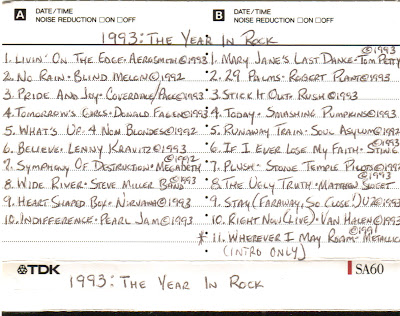 A DATE/TIME
NOISE REDUCTION □ON □OFF
B DATE/TIME
NOISE REDUCTION □ON □OFF
1993: The Year In Rock
1. Livin' On The Edge • Aerosmith ©1993
2. No Rain • Blind Melon ©1992
3. Pride And Joy • Coverdale/Page ©1993
4. Tomorrow's Girls • Donald Fagen ©1993
5. What's Up • 4 Non Blondes ©1992
6. Believe • Lenny Kravitz ©1993
7. Symphony Of Destruction • Megadeth ©1992
8. Wide River • Steve Miller Band ©1993
9. Heart Shaped Box • Nirvana ©1993
10. Indifference • Pearl Jam ©1993
1. Mary Jane's Last Dance • Tom Petty ©1993
2. 29 Palms • Robert Plant ©1993
3. Stick It Out • Rush ©1993
4. Today • Smashing Pumpkins ©1993
5. Runaway Train • Soul Asylum ©1992
6. If I Ever Lose My Faith • Sting ©1993
7. Plush • Stone Temple Pilots ©1992
8. The Ugly Truth • Matthew Sweet ©1993
9. Stay (Faraway, So Close!) U2 ©1993
10. Right Now (Live) • Van Halen ©1993
* 11. Wherever I May Roam • Metallica ©1991
(Intro Only)
TDK
SA60
1993: The Year In Rock